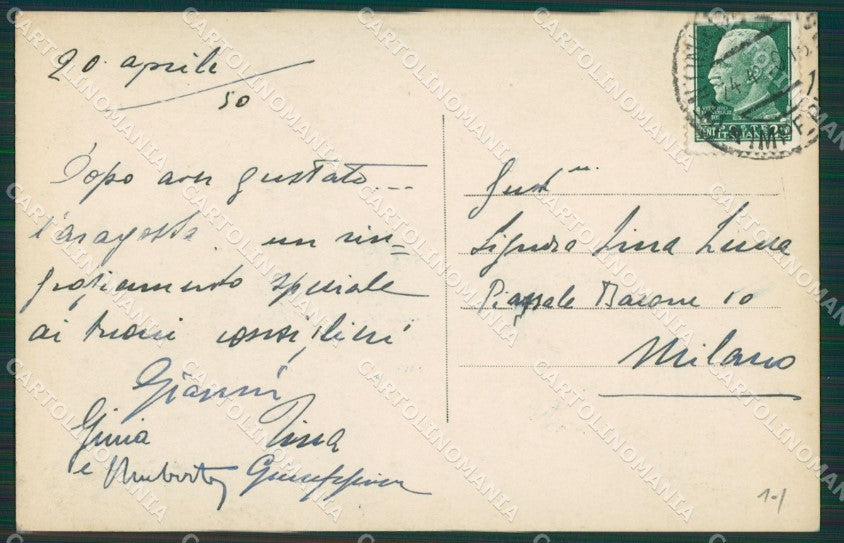 20 aprile
50
Dopo aver gustato...
l'aragosta. un rin=
graziamento speciale
ai buoni consiglieri
Gianni
Gina Pina
e Umberto Giuseppina
Gent.
Signora Lina
Piazzale 10
Milano
ITALIANE
1-/
CARTOLINOMANIA